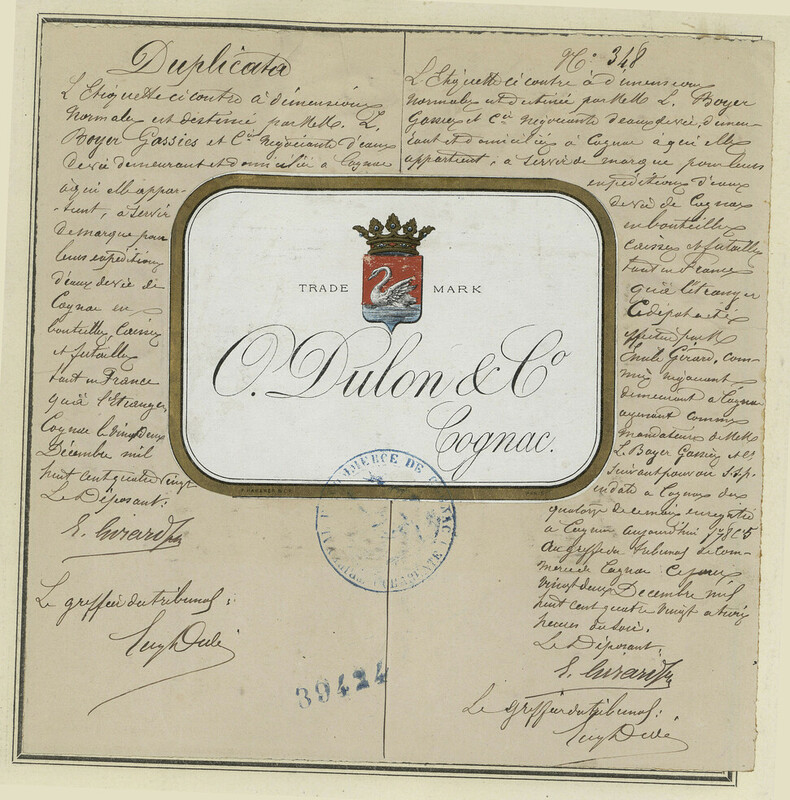 Duplicata
L'Etiquette ci contre à dimensions
normales est destinée par MM. L.
Boyer Gassies et Cie Négociants d'eaux
de vie demeurant et domiciliés à Cognac
à qui elle appar-
-tient, à servir
de marque pour
leurs expéditions
d'eaux de vie de
Cognac en
bouteilles, caisses
et futailles
tant en France
qu'à l'Etranger
Cognac le vingt deux
Décembre mil
huit cent quatre vingt
Le Déposant:
E. Girard
Le greffier du tribunal:
No 348
L'Etiquette ci contre à dimensions
normales est destinée par MM. L. Boyer
Gassies et Cie négociants d'eaux de vie, demeu-
rant et domiciliés à Cognac à qui elle
appartient, à servir de marque pour leurs
expéditions d'eaux
de vie de Cognac
en bouteilles
caisses et futailles
tant en France
qu'à l'étranger
Ce dépôt a été
effectué par M.
Emile Gérard, com-
mis négociant
demeurant à Cognac
agissant comme
mandataire de MM.
L. Boyer Gassies et Cie
suivant pouvoir s.s.p.
en date à Cognac du
quatorze de ce mois enregistré
à Cognac aujourd'hui
au greffe du tribunal de Com-
merce de Cognac Ce jour
vingt deux Décembre mil
huit cent quatre vingt à trois
heures du soir.
Le Déposant:
E. Girard
Le greffier du tribunal:
TRADE MARK
O. Dulon & Co
Cognac.
COMMERCE DE COGNAC
CHARENTE
39424